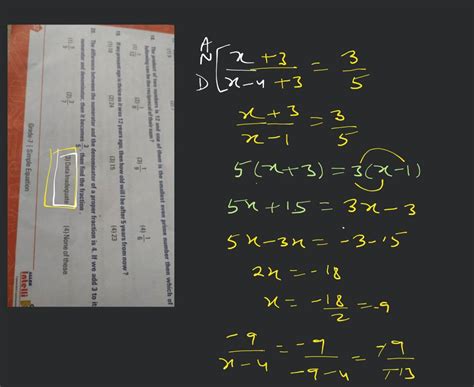 18. The product of two numbers is 12 and one of them is the smallest even prime number then which of
following can be the reciprocal of their sum?
present age is as it was 12 years ago, then how old will I be after 5 years from now ?
(1) 18 (2) 24 (3) 15 (4) 23
20. The difference between the numerator and the denominator of a proper fraction is 4. If we add 3 to it
numerator and denominator, then it becomes 3/5, then find the fraction.
(3) Data Inadequate (4) None of these
Grade-7 | Simple Equation
Intelli
N x+3 = 3
D x-4+3 5
x+3 = 3
x-1 5
5(x+3) = 3(x-1)
5x+15 = 3x-3
5x-3x = -3-15
2x = -18
x = -18/2 = -9
-9 = -9 = +9
x-4 -9-4 +13